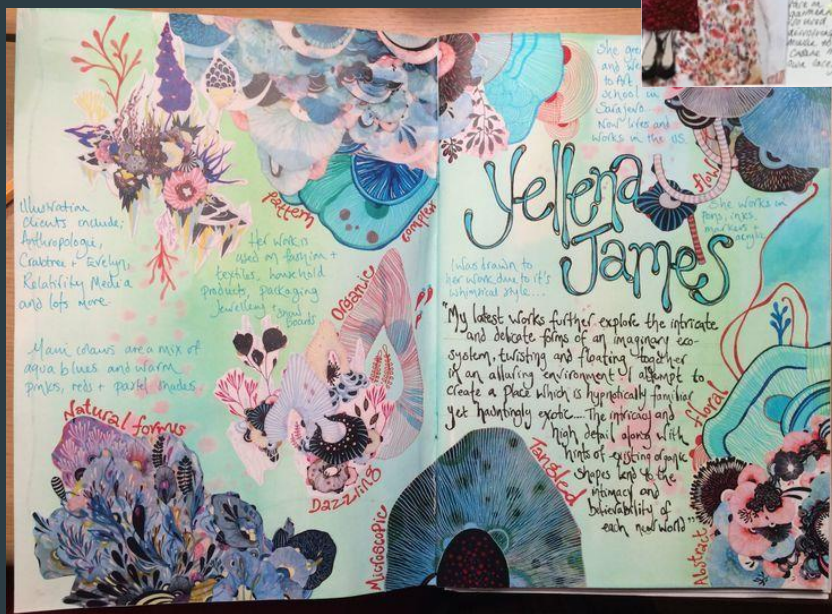 Illustration
Clients include;
Anthropologie,
Crabtree + Evelyn,
Relativity Media
and lots more.
Main colours are a mix of
aqua blues and warm
pinks, reds + pastel shades
pattern
complex
Her work is
used on fashion +
textiles, household
products, packaging
Jewellery + snow
boards
Organic
Natural forms
Dazzling
Microscopic
She
and
to Art
school in
Sarajevo
Now lives and
works in the US.
Yellena
James
flow
She works in
pens, inks,
markers +
acrylic
I was drawn to
her work due to it's
whimsical style...
"My latest works further explore the intricate
and delicate forms of an imaginary eco-
system, twisting and floating together
in an alluring environment. I attempt to
create a place which is hypnotically familiar
yet hauntingly exotic.... The intricacy and
high detail along with
hints of existing organic
shapes lend to the
intimacy and
believability of
each new world"
Tangled
floral
Abstract